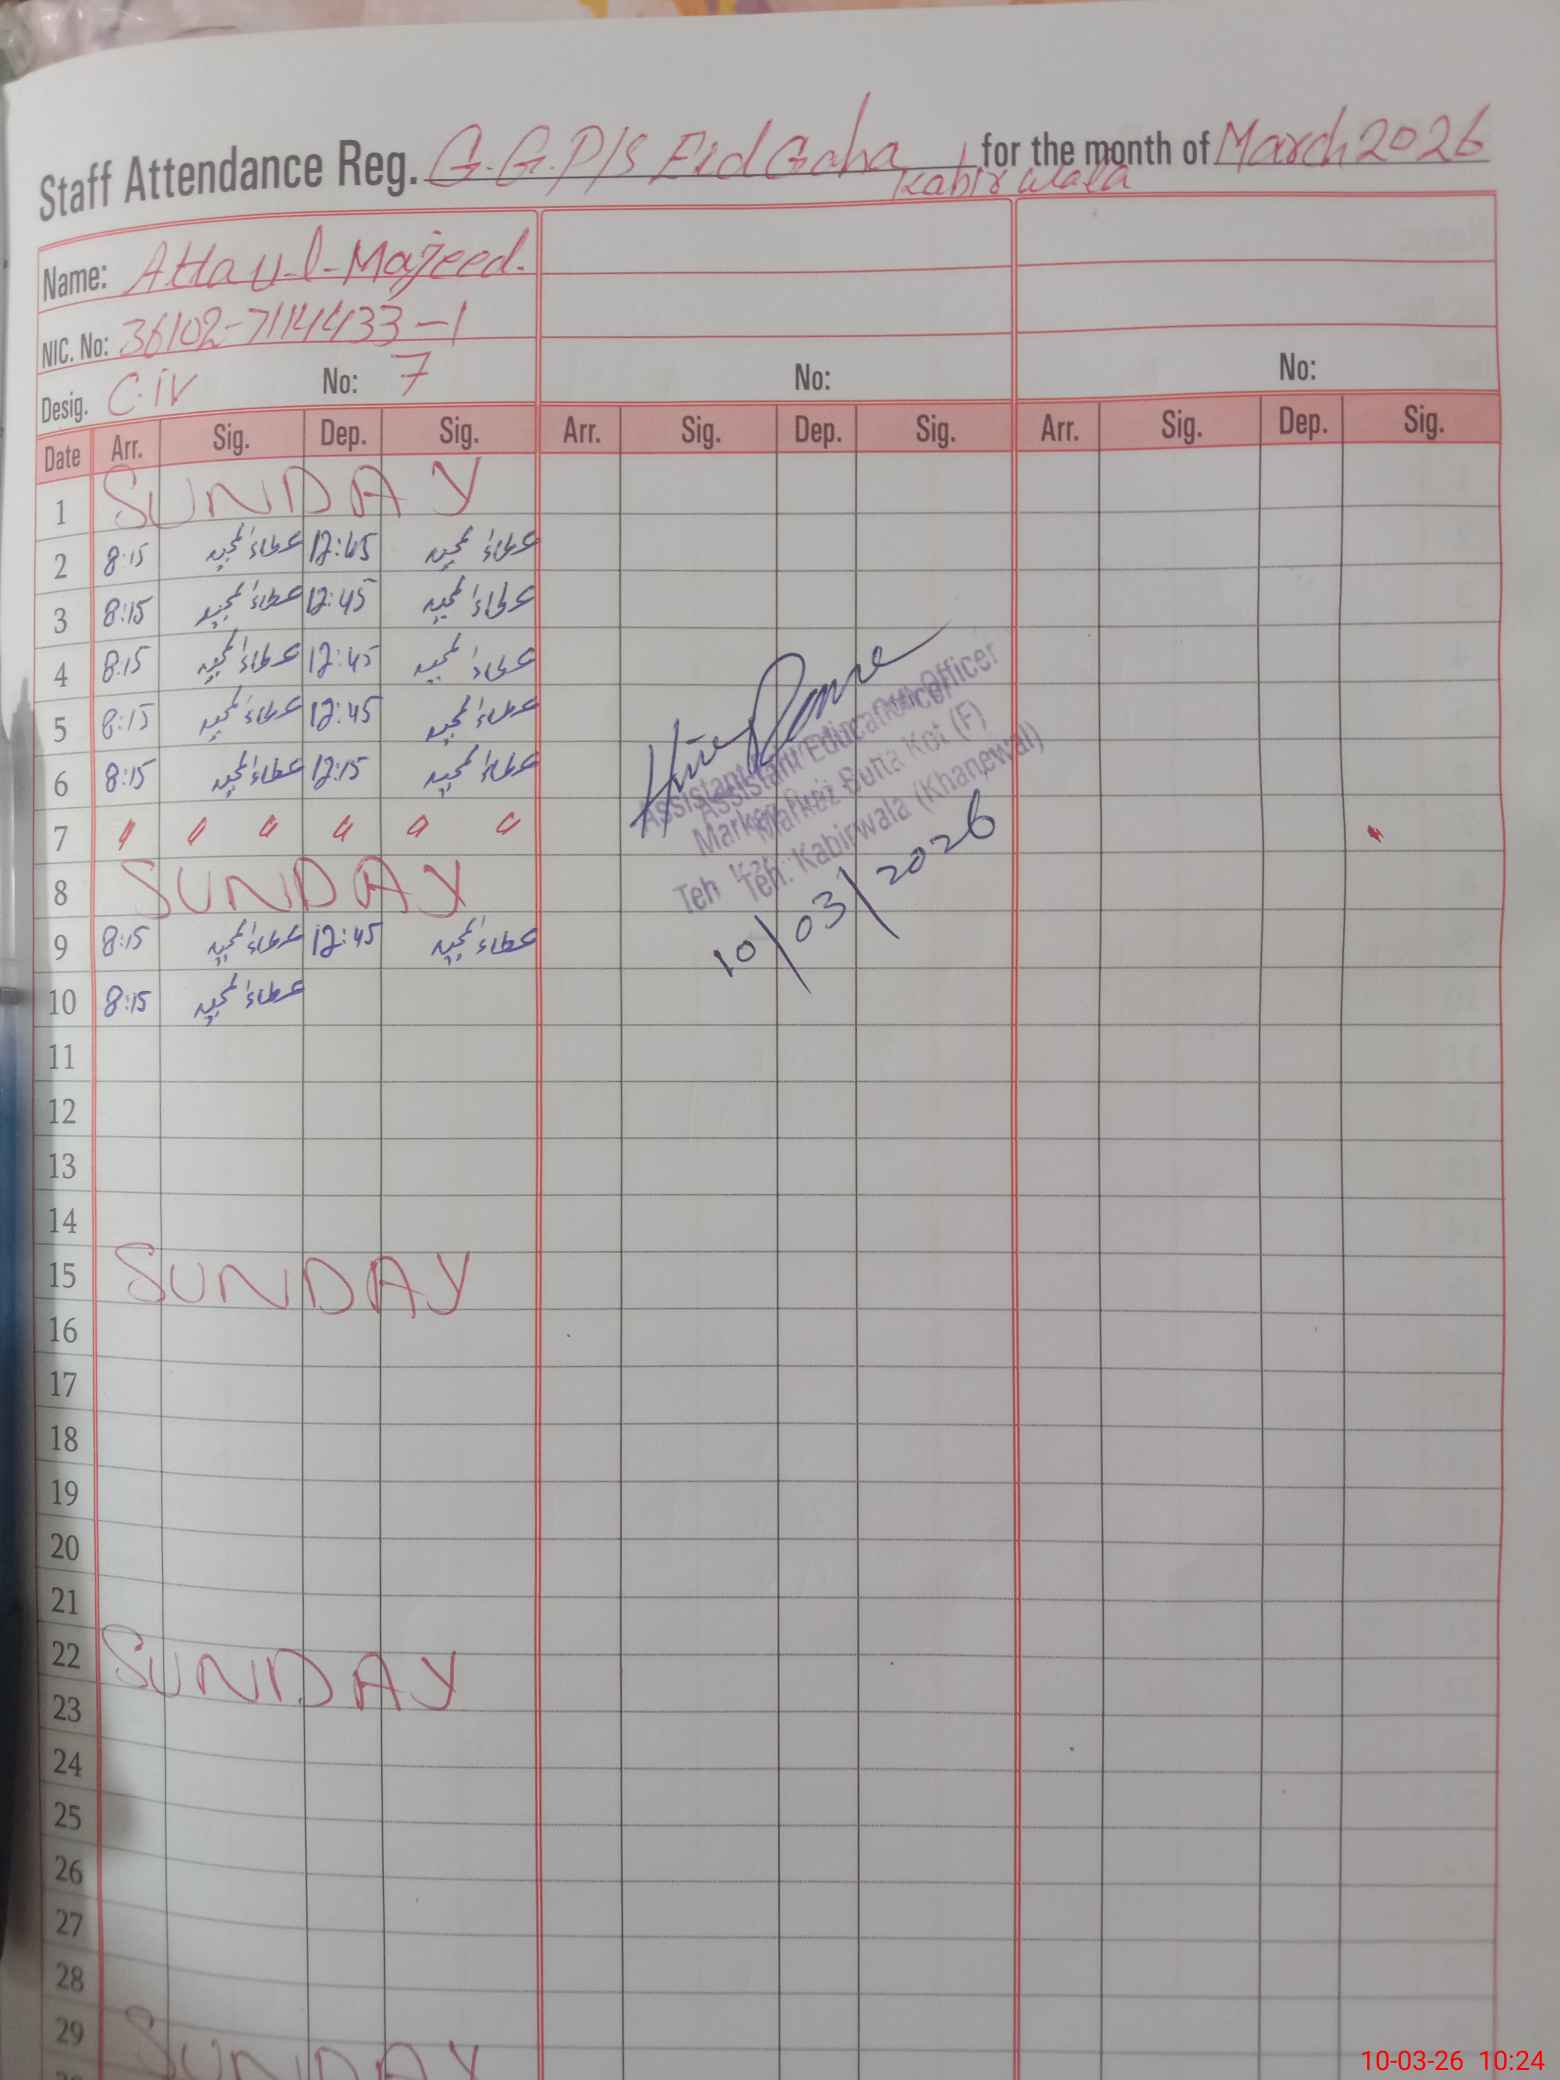 Staff Attendance Reg. G.G.P/S Eid Gaha Kabirwala for the month of March 2026
Name: Atta-ul-Majeed.
NIC. No: 36102-7114433-1
Desig. C.iv No: 7 No: No:
Date Arr. Sig. Dep. Sig. Arr. Sig. Dep. Sig. Arr. Sig. Dep. Sig.
1 SUNDAY
2 8:15 عطاءالمجید 12:45 عطاءالمجید
3 8:15 عطاءالمجید 12:45 عطاءالمجید
4 8:15 عطاءالمجید 12:45 عطاءالمجید
5 8:15 عطاءالمجید 12:45 عطاءالمجید
6 8:15 عطاءالمجید 12:15 عطاءالمجید
7 " " " " " "
8 SUNDAY
9 8:15 عطاءالمجید 12:45 عطاءالمجید
10 8:15 عطاءالمجید
Assistant Education Officer
Markaz Kot (F)
Teh: Kabirwala (Khanewal)
10/03/2026
11
12
13
14
15 SUNDAY
16
17
18
19
20
21
22 SUNDAY
23
24
25
26
27
28
29 SUNDAY
10-03-26 10:24